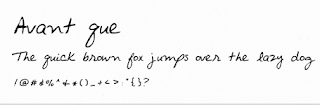 Avant que
The quick brown fox jumps over the lazy dog
!@#$%^&*()_+<>:"{}?